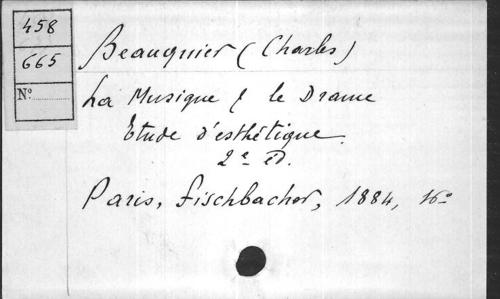 458
665
N°
Beauquier (Charles)
La Musique & le Drame
Etude d'esthétique.
2e éd.
Paris, Fischbacher, 1884, 16°